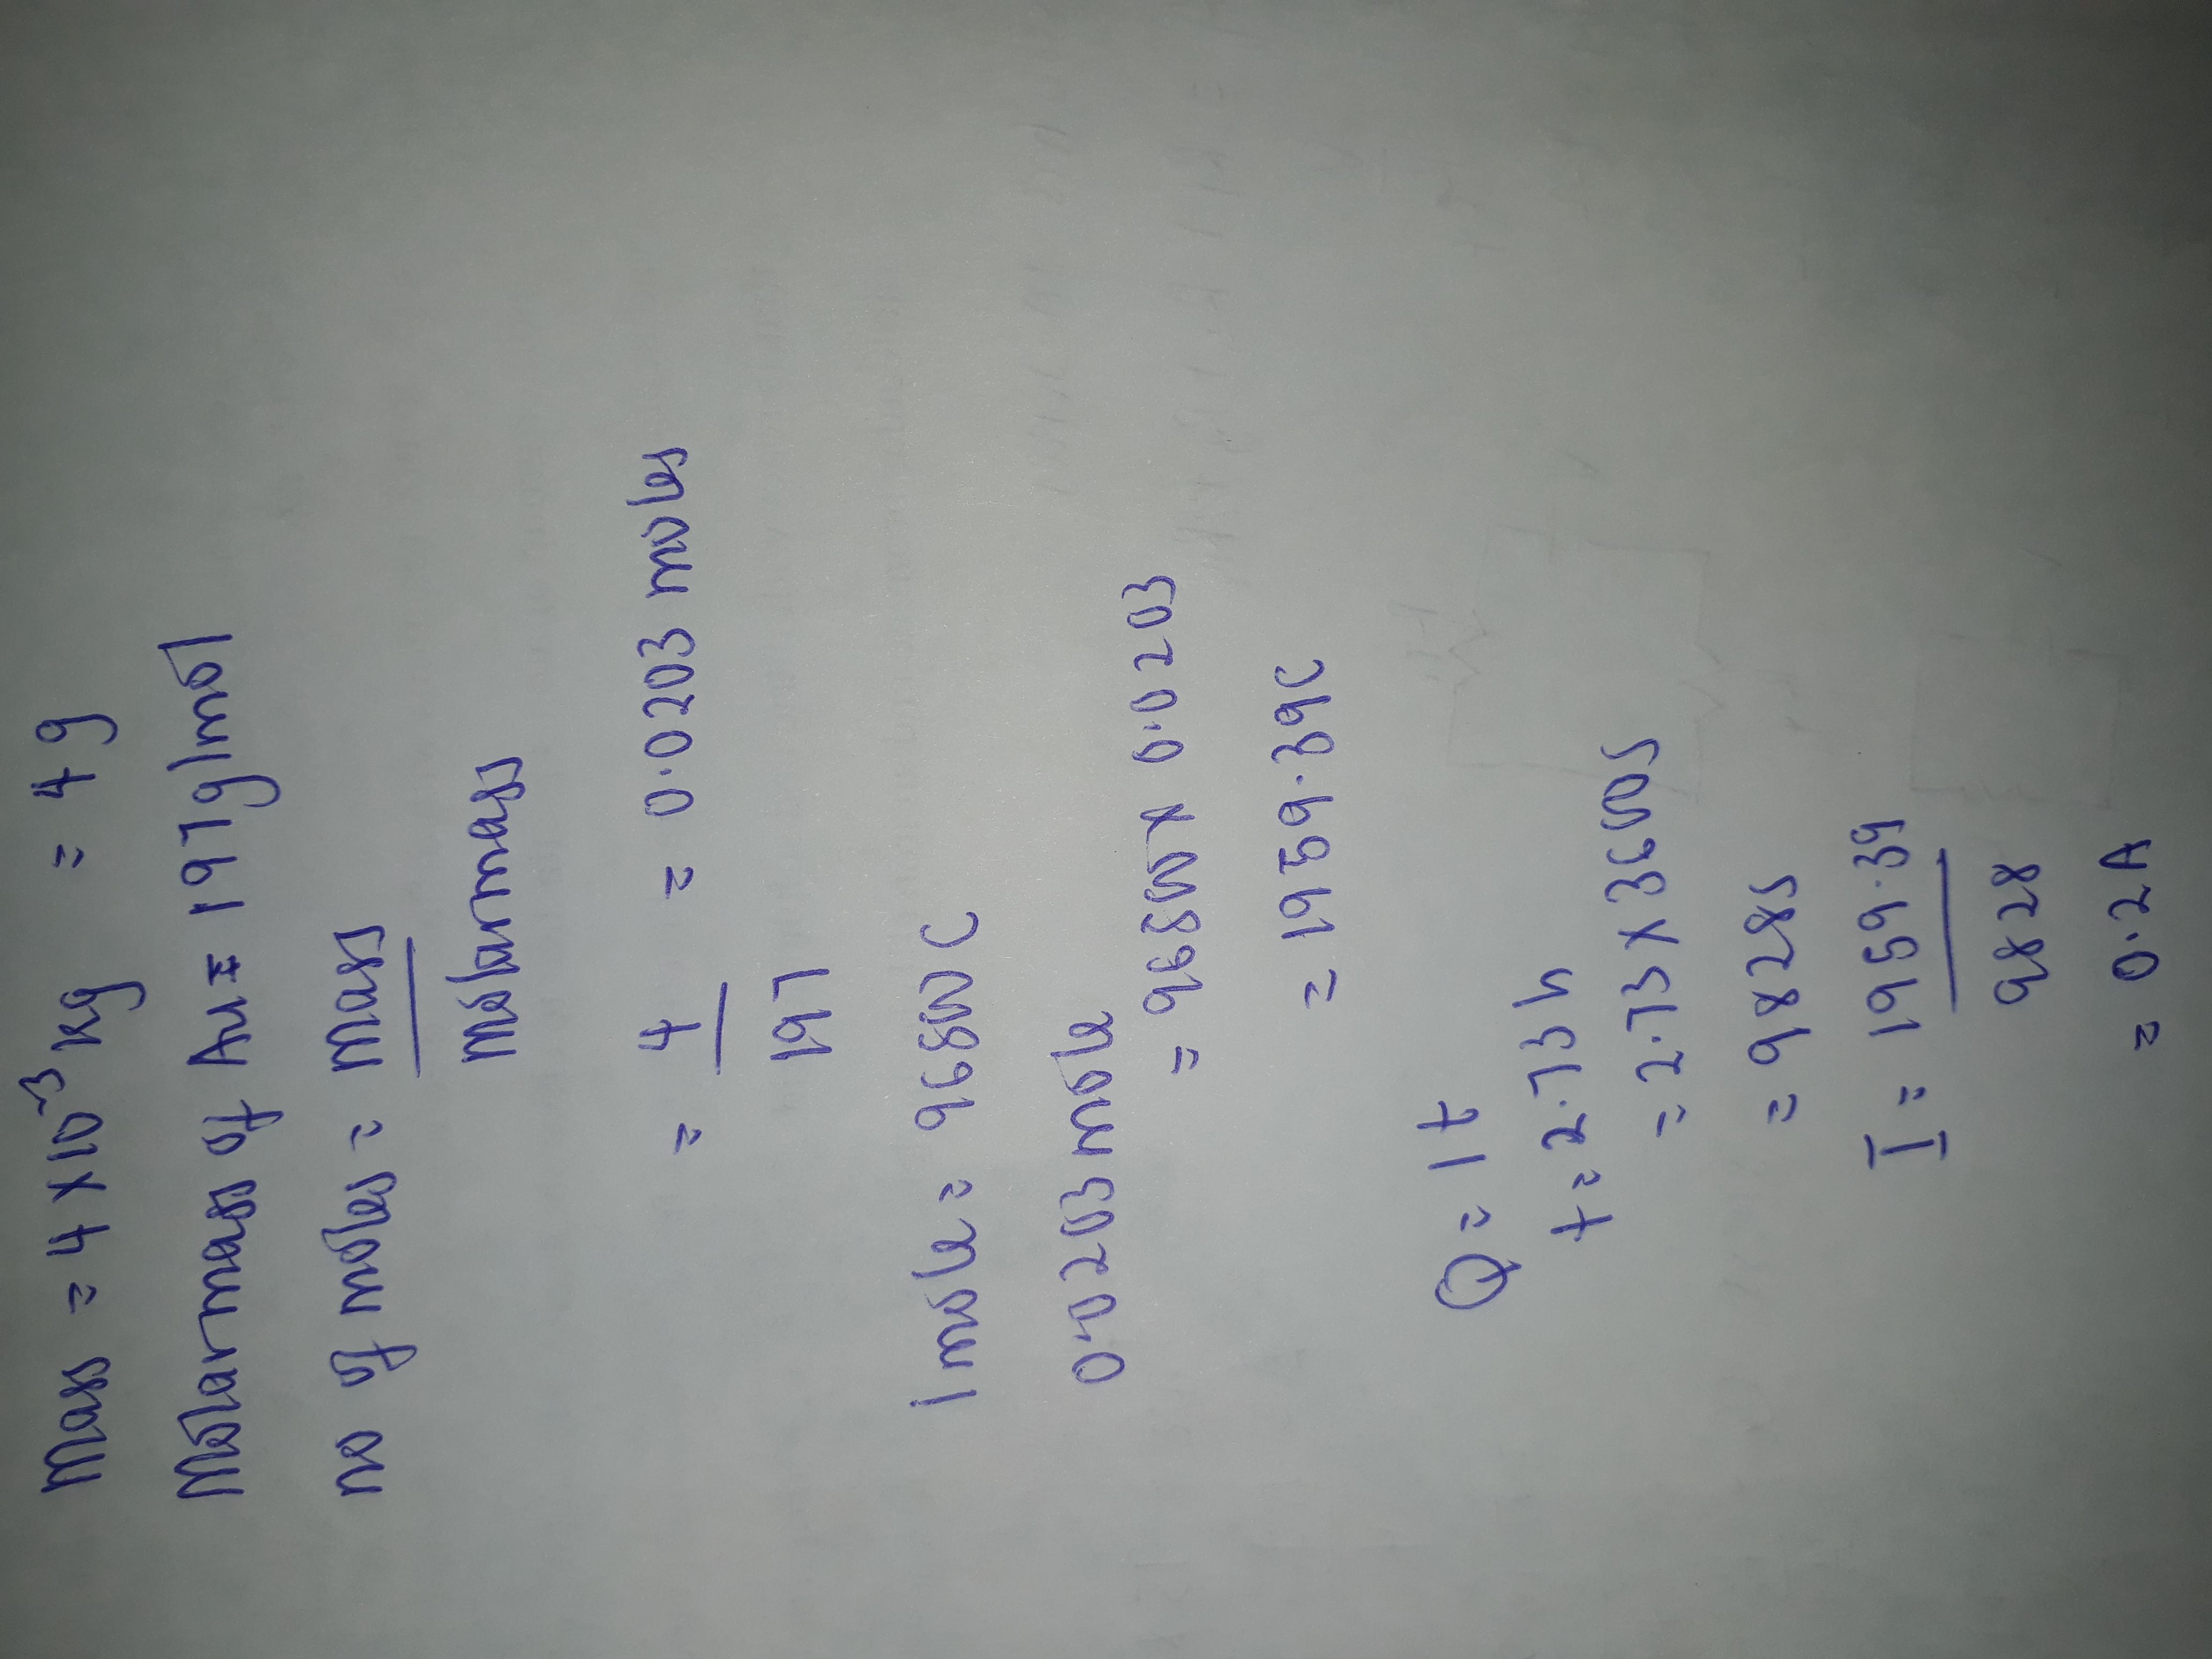 Mass = 4 × 10⁻³ kg = 4 g
Molar mass of Au = 197 g/mol
no of moles = mass
molar mass
= 4 = 0.0203 moles
197
1 mole = 96500 C
0.0203 mole
= 96500 × 0.0203
= 1959.39C
Q = It
t = 2.73 h
= 2.73 × 3600s
= 9828s
I = 1959.39
9828
= 0.2A